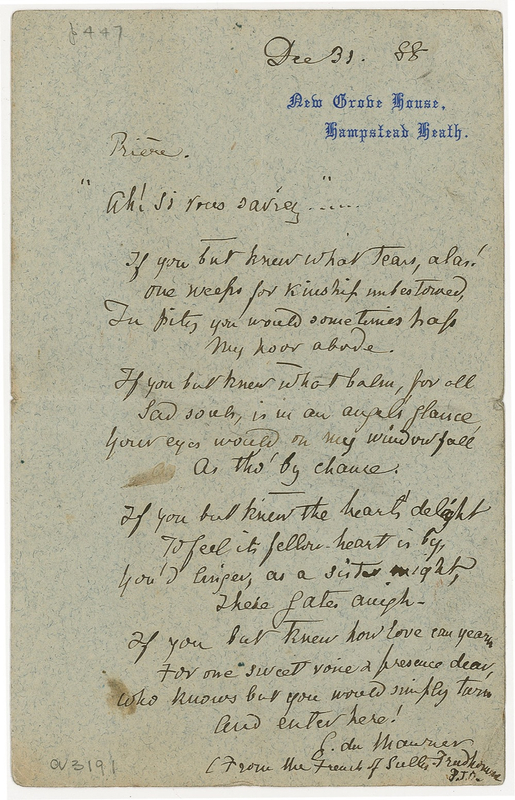 p447
Dec 31. 88
New Grove House,
Hampstead Heath.
Prière.
"Ah! Si vous saviez ......"
If you but knew what tears, alas!
one weeps for kinship unbestowed,
In pity you would sometimes pass
My poor abode.
If you but knew what balm, for all
Sad souls, is in an angel's glance
Your eyes would on my window fall
As tho' by chance.
If you but knew the heart's delight
To feel its fellow-heart is by,
You'd linger, as a sister might,
These gates anigh-
If you but knew how love can yearn
For one sweet voice & presence dear,
Who knows but you would simply turn
And enter here!
G. du Maurier
(From the French of Sully Prudhomme